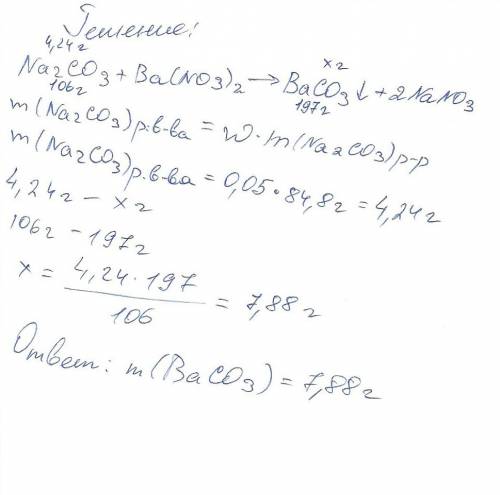 Решение:
4,24г xг
Na2CO3 + Ba(NO3)2 → BaCO3↓ + 2NaNO3
106г 197г
m(Na2CO3)р.в-ва = W·m(Na2CO3)р-р
m(Na2CO3)р.в-ва = 0,05·84,8г = 4,24г
4,24г – xг
106г – 197г
x = 4,24·197
106
= 7,88г
Ответ: m(BaCO3) = 7,88г